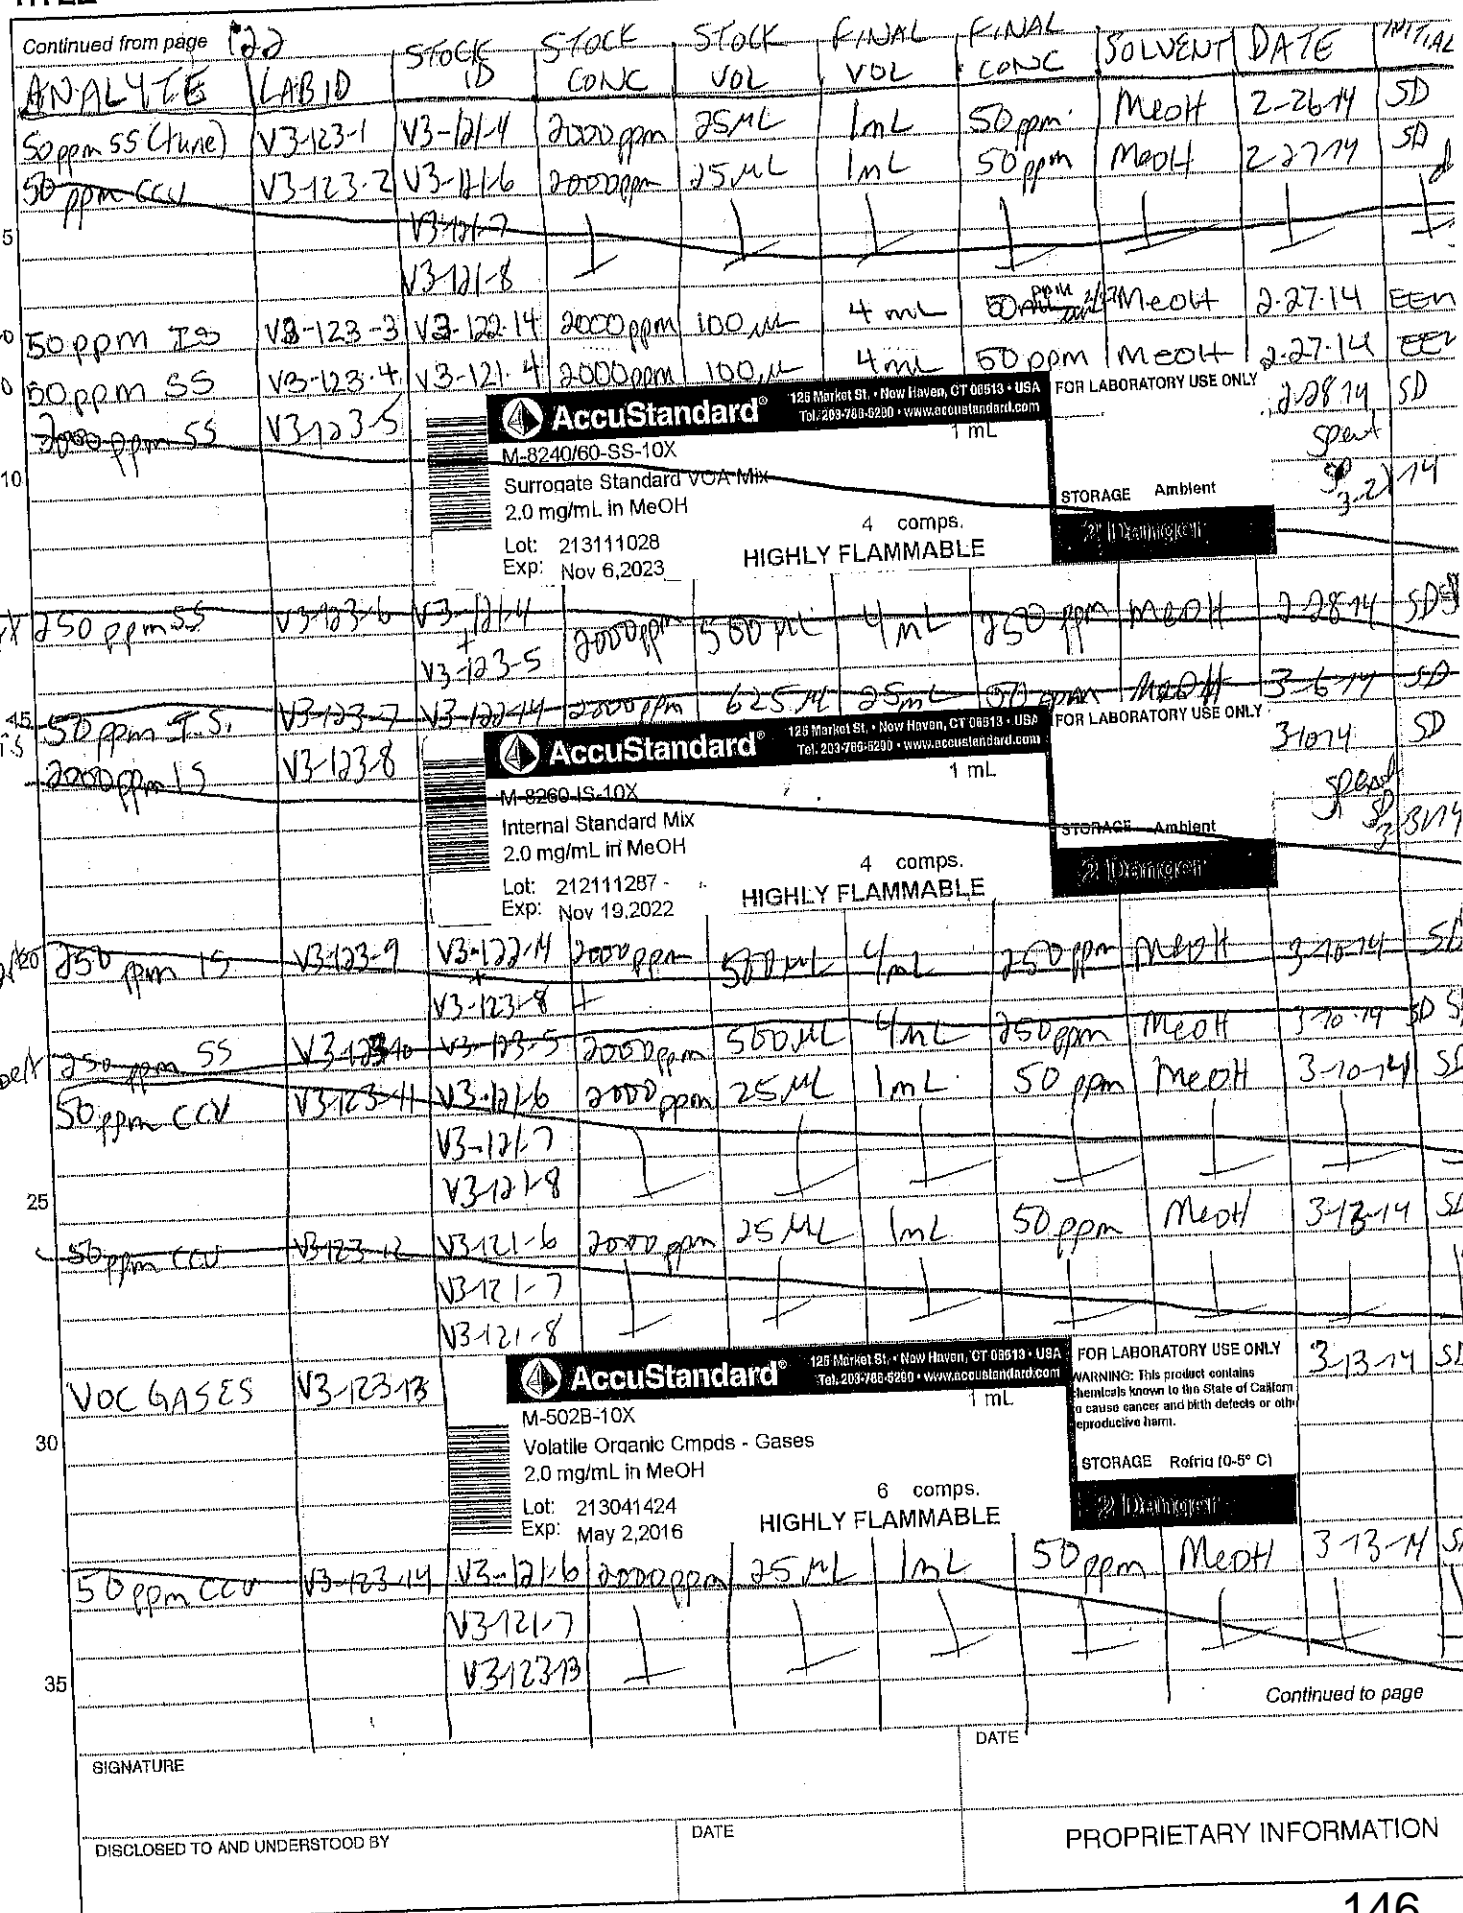 Continued from page 122
ANALYTE LAB ID STOCK ID STOCK CONC STOCK VOL FINAL VOL FINAL CONC SOLVENT DATE INITIAL
50ppm SS (tune) V3-123-1 V3-121-4 2000ppm 25µL 1mL 50ppm MeOH 2-26-14 SD
50 ppm CCV V3-123-2 V3-121-6 2000ppm 25µL 1mL 50ppm MeOH 2-27-14 SD
5 V3-121-7
V3-121-8
50ppm IS V3-123-3 V3-122-14 2000ppm 100µL 4mL 50 ppm 2/27 MeOH 2-27-14
50ppm SS V3-123-4 V3-121-4 2000ppm 100µL 4mL 50ppm MeOH 2-27-14
2000ppm SS V3-123-5 2-28-14 SD
spent
SD
14
AccuStandard® 125 Market St. • New Haven, CT 06513 • USA
Tel. 203-786-5290 • www.accustandard.com
FOR LABORATORY USE ONLY
1 mL
10 M-8240/60-SS-10X
Surrogate Standard VOA Mix
2.0 mg/mL in MeOH
STORAGE Ambient
4 comps.
2 Danger
Lot: 213111028
HIGHLY FLAMMABLE
Exp: Nov 6,2023
250ppm SS V3-123-6 V3-121-4 2000ppm 500µL 4mL 250ppm MeOH 2-28-14 SD
+
V3-123-5
50ppm I.S. V3-123-7 V3-122-14 2000ppm 625µL 25mL 50ppm MeOH 3-6-14 SD
2000ppm IS V3-123-8 3-10-14 SD
spent
SD
AccuStandard® 125 Market St. • New Haven, CT 06513 • USA
Tel. 203-786-5290 • www.accustandard.com
FOR LABORATORY USE ONLY
1 mL
M-8260-IS-10X
Internal Standard Mix
2.0 mg/mL in MeOH
STORAGE Ambient
4 comps.
2 Danger
Lot: 212111287
HIGHLY FLAMMABLE
Exp: Nov 19,2022
20 250ppm IS V3-123-9 V3-122-14 2000ppm 500µL 4mL 250ppm MeOH 3-10-14 SD
+
V3-123-8
250ppm SS V3-123-10 V3-123-5 2000ppm 500µL 4mL 250ppm MeOH 3-10-14 SD
50ppm CCV V3-123-11 V3-121-6 2000ppm 25µL 1mL 50ppm MeOH 3-10-14 SD
V3-121-7
25 V3-121-8
50ppm CCV V3-123-12 V3-121-6 2000ppm 25µL 1mL 50ppm MeOH 3-12-14
V3-121-7
V3-121-8
VOC GASES V3-123-13 3-13-14
AccuStandard® 125 Market St. • New Haven, CT 06513 • USA
Tel. 203-786-5290 • www.accustandard.com
FOR LABORATORY USE ONLY
WARNING: This product contains
chemicals known to the State of Californ
o cause cancer and birth defects or oth
eproductive harm.
1 mL
M-502B-10X
30 Volatile Organic Cmpds - Gases
2.0 mg/mL in MeOH
STORAGE Refrig (0-5° C)
6 comps.
2 Danger
Lot: 213041424
HIGHLY FLAMMABLE
Exp: May 2,2016
50ppm CCV V3-123-14 V3-121-6 2000ppm 25µL 1mL 50ppm MeOH 3-13-14
V3-121-7
35 V3-123-13
Continued to page
SIGNATURE DATE
DISCLOSED TO AND UNDERSTOOD BY DATE PROPRIETARY INFORMATION
146